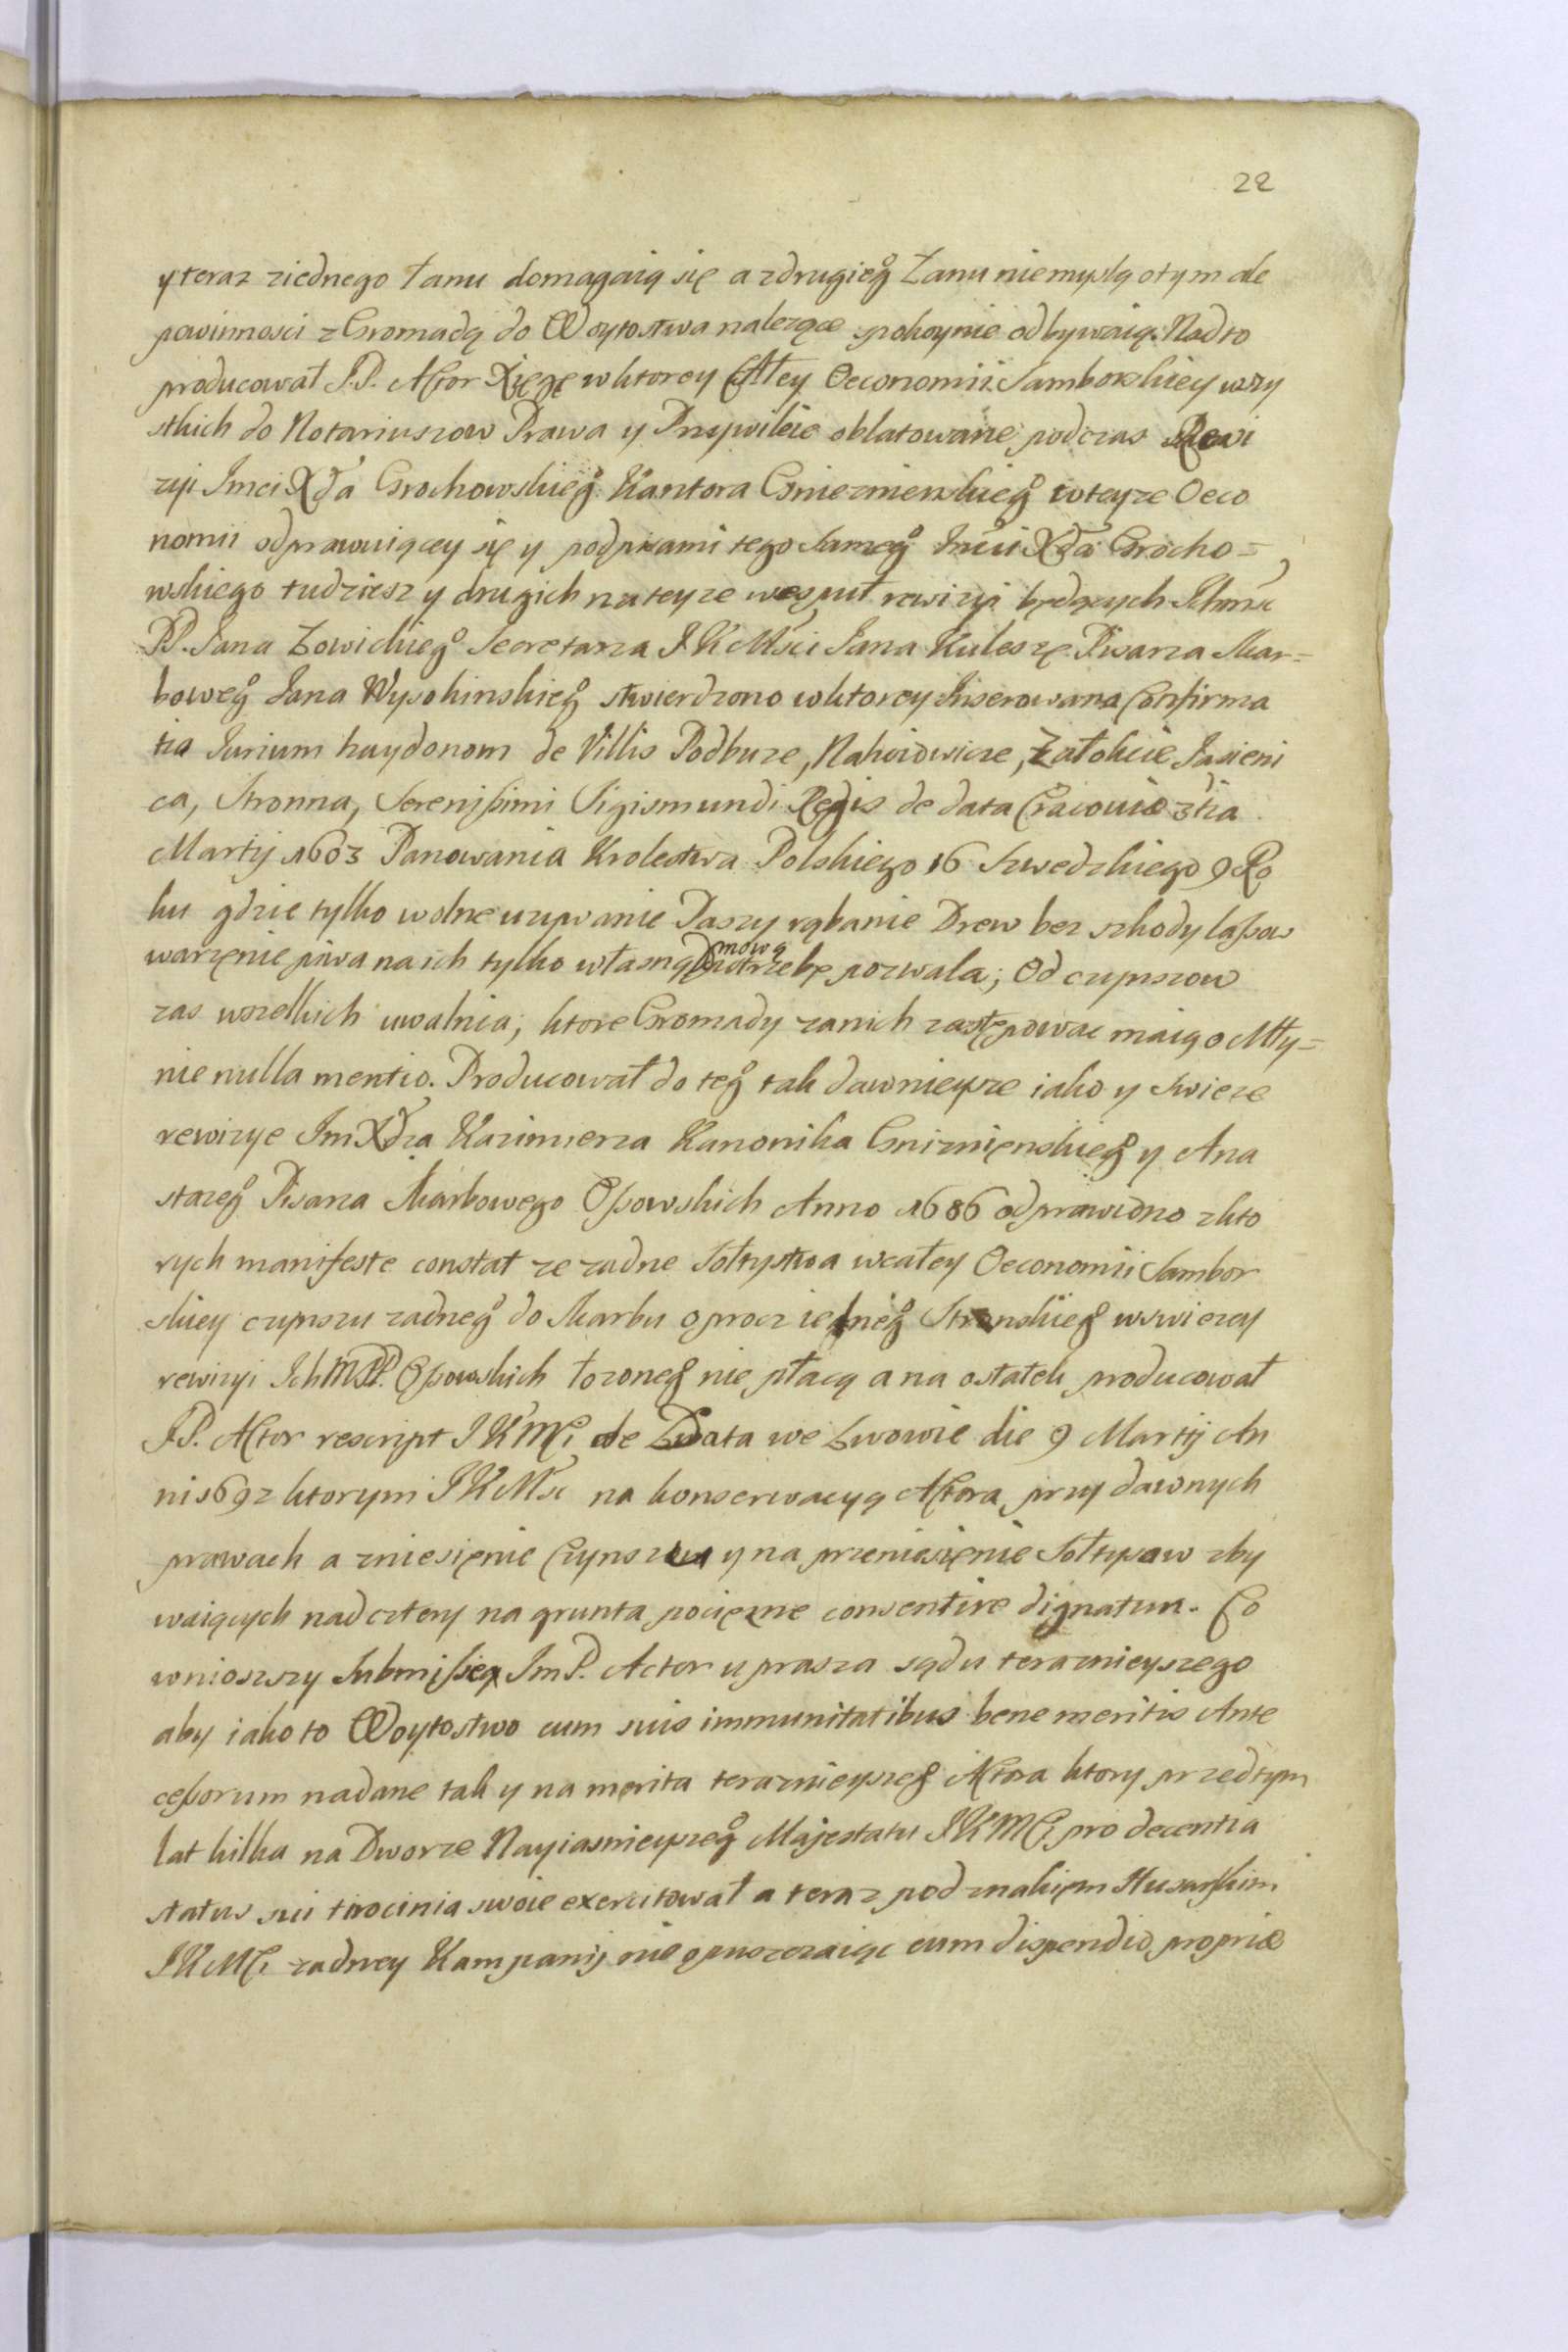 22
y teraz ziednego Łanu domagaią się a zdrugieg° Łanu niemyslą otym ale
powinnosci z Gromadą do Woytostwa nalezące spokoynie odbywaią. Nadto
producował J.P. Actor Xięgę wktorey Całey Oeconomii Samborskiey wszy
stkich do Notariuszow Prawa y Przywileie oblatowane podczas Rewi
zyi Jmci Xdza Grochowskieg° Kantora Gnieznienskieg° wteyze Oeco
nomii odprawuiącey się y podpisami tego Sameg° Jmci Xdza Grocho=
wskiego tudziesz y drugich nateyze wespuł rewizyi będących Ichmsc
PP. Jana Łowickieg° Secretarza JKMsci Jana Kuleszę Pisarza Skar=
boweg° Jana Wysokinskieg° stwierdzono wktorey Inserowana Confirma
tia Iurium haydonom de Villis Podbuze, Nahoiowicze, Załokcie Jasieni
ca, Stronna, Serenissimi Sigismundi Regis de data Cracoviæ 3tia
Martij 1603 Panowania Krolestwa Polskiego 16 Szwedzkiego 9 Ro
ku gdzie tylko wolne uzywanie Paszy rąbanie Drew bez szkody lassow
warzenie piwa na ich tylko własną domową potrzebę pozwala; Od czynszow
zas wszelkich uwalnia, ktore Gromady zanich zastępowac maią o Mły=
nie nulla mentio. Producował do teg° tak dawnieysze iako y swieze
rewizye Im Xdza Kazimierza Kanonika Gnizninskieg° y Ana
stazeg° Pisarza Skarbowego Ossowskich Anno 1686 odprawiono zkto
rych manifeste constat ze zadne Sołtystwa wcałey Oeconomii Sambor
skiey czynszu zadneg° do Skarbu oprocz iedneg° Stronskieg° wswiezey
rewizyi IchMPP. Ossowskich łozoneg° nie płacą a na ostatek producował
J.P. Actor rescript JKMCi de Data we Lwowie die 9 Martij An
ni 1692 ktorym JKMsc na konserwacyą Actora przy dawnych
prawach a zniesienie Czynszu y na przeniesienie Sołtysow zby
waiących nad cztery na grunta pociężne consentire dignatur. Co
wnioszszy Submissię Im P. Actor uprasza sądu teraznieyszego
aby iako to Woytostwo cum suis immunitatibus bene meritis Ante
cessorum nadane tak y na merita teraznieyszeg° Actora ktory przedtym
lat kilka na Dworze Nayiasnieyszeg° Majestatu JKMCi pro decentia
status sui tirocinia swoie exercitował a teraz pod znakiem Husarskim
JKMCi zadney Kampanij nie opuszczaiąc cum dispendio propriæ